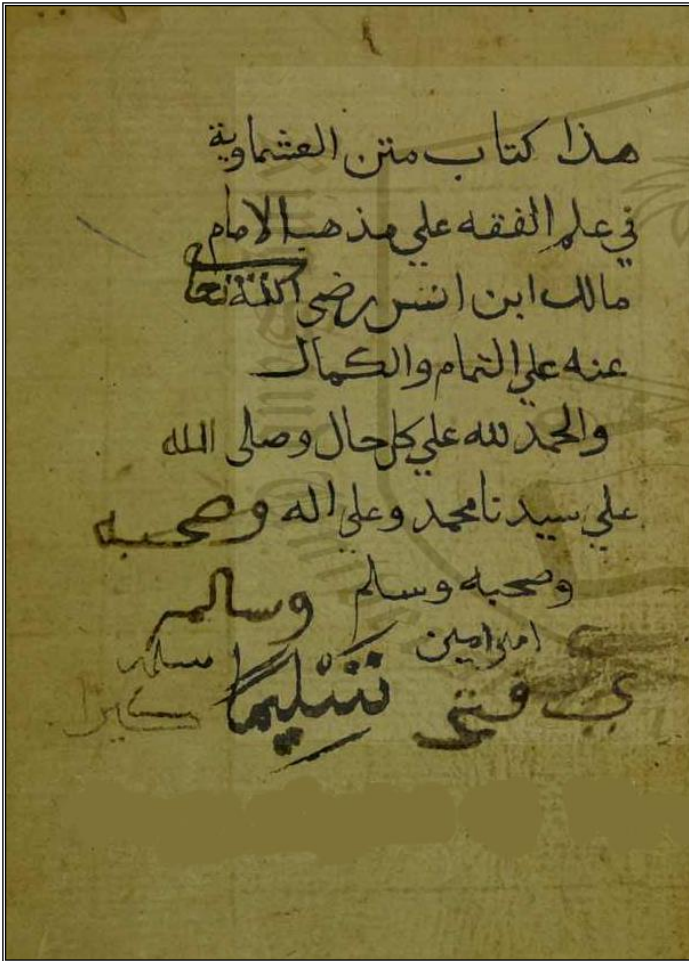 هذا كتاب متن العشماوية
في علم الفقه علي مذهب الامام
مالك ابن انس رضي الله تعا
عنه علي التمام والكمال
والحمد لله علي كل حال وصلى الله
علي سيدنا محمد وعلي اله وصحبه
وصحبه وسلم وسالم
امين امين
تسليما